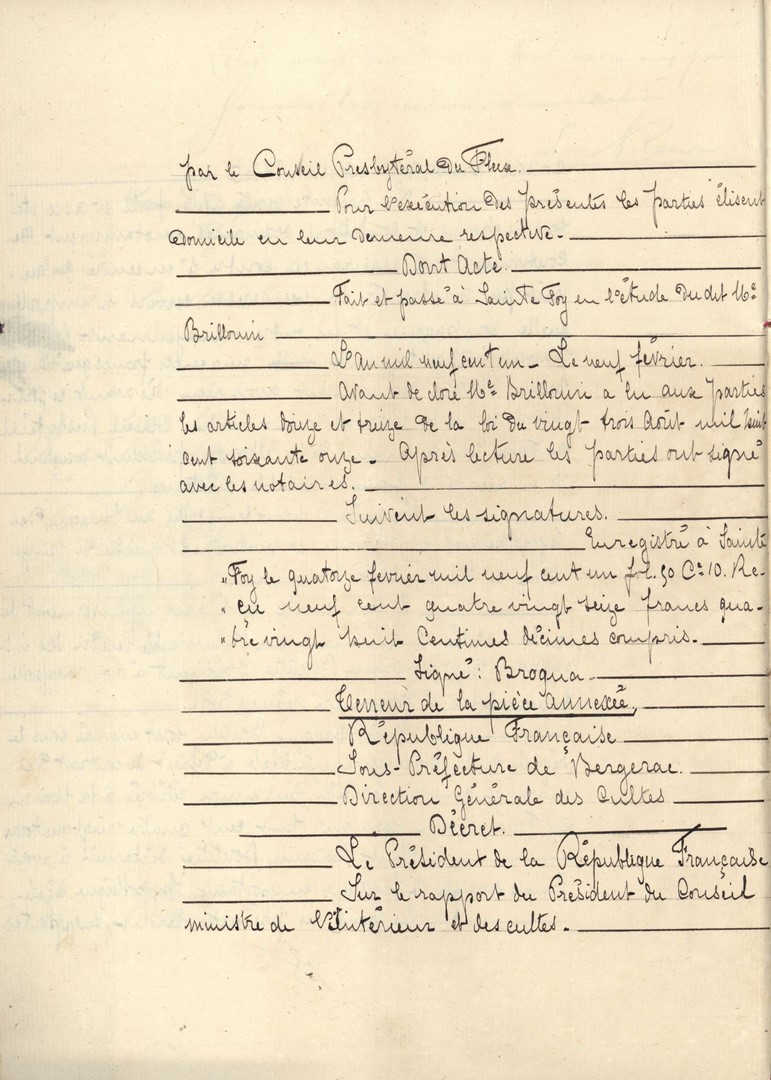 par le Conseil Presbytéral du Fleix.
Pour l'exécution des présentes les parties élisent
domicile en leur demeure respective.
Dont Acte.
Fait et passé à Sainte Foy en l'étude du dit Me
Brillouin
L'An mil neuf cent un - Le neuf février.
Avant de clore Me Brillouin a lu aux Parties
les articles douze et treize de la loi du vingt trois Août mil huit
cent soixante onze - Après lecture les parties ont signé
avec les notaires.
Suivent les signatures.
Enregistré à Sainte
"Foy le quatorze février mil neuf cent un fol. 50 Ce 10. Re-
" çu neuf cent quatre vingt seize francs qua-
" tre vingt huit Centimes décimes compris.
Signé : Broqua
Teneur de la pièce annexée,
République Française
Sous-Préfecture de Bergerac.
Direction Générale des Cultes
Décret.
Le Président de la République Française
Sur le rapport du Président du Conseil
ministre de l'Intérieur et des cultes.